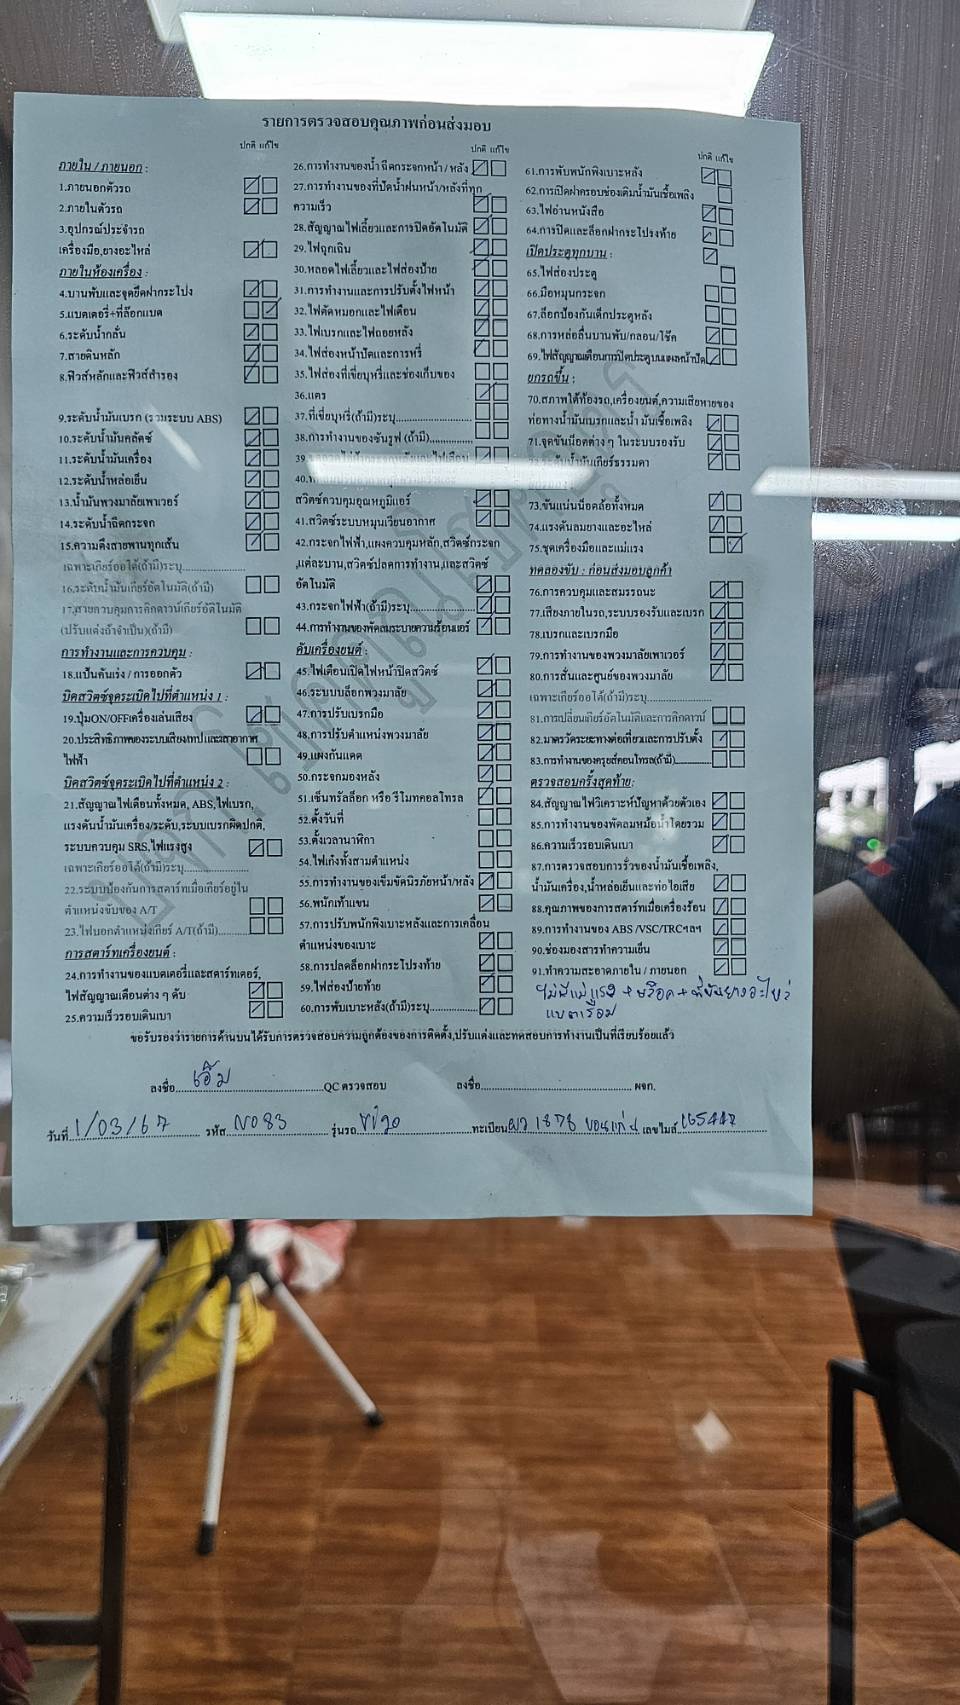 รายการตรวจสอบคุณภาพก่อนส่งมอบ
ปกติ แก้ไข
ภายใน / ภายนอก :
1.ภายนอกตัวรถ
2.ภายในตัวรถ
3.อุปกรณ์ประจำรถ
เครื่องมือ,ยางอะไหล่
ภายในห้องเครื่อง :
4.บานพับและจุดยึดฝากระโปรง
5.แบตเตอรี่+ที่ล๊อกแบต
6.ระดับน้ำกลั่น
7.สายดินหลัก
8.ฟิวส์หลักและฟิวส์สำรอง
9.ระดับน้ำมันเบรก (รวมระบบ ABS)
10.ระดับน้ำมันคลัตช์
11.ระดับน้ำมันเครื่อง
12.ระดับน้ำหล่อเย็น
13.น้ำมันพวงมาลัยเพาเวอร์
14.ระดับน้ำฉีดกระจก
15.ความตึงสายพานทุกเส้น
เฉพาะเกียร์ออโต้(ถ้ามี)ระบุ
16.ระดับน้ำมันเกียร์อัตโนมัติ(ถ้ามี)
17.สายควบคุมการคิกดาวน์เกียร์อัตโนมัติ
(ปรับแต่งถ้าจำเป็น)(ถ้ามี)
การทำงานและการควบคุม :
18.แป้นคันเร่ง / การออกตัว
บิดสวิตซ์จุดระเบิดไปที่ตำแหน่ง 1 :
19.ปุ่มON/OFFเครื่องเล่นเสียง
20.ประสิทธิภาพของระบบเสียงเทปและเสาอากาศ
ไฟฟ้า
บิดสวิตซ์จุดระเบิดไปที่ตำแหน่ง 2 :
21.สัญญาณไฟเตือนทั้งหมด, ABS,ไฟเบรก,
แรงดันน้ำมันเครื่อง/ระดับ,ระบบเบรกผิดปกติ,
ระบบควบคุม SRS,ไฟแรงสูง
เฉพาะเกียร์ออโต้(ถ้ามี)ระบุ
22.ระบบป้องกันการสตาร์ทเมื่อเกียร์อยู่ใน
ตำแหน่งขับของ A/T
23.ไฟบอกตำแหน่งเกียร์ A/T(ถ้ามี)
การสตาร์ทเครื่องยนต์ :
24.การทำงานของแบตเตอรี่และสตาร์ทเตอร์,
ไฟสัญญาณเตือนต่าง ๆ ดับ
25.ความเร็วรอบเดินเบา
ปกติ แก้ไข
26.การทำงานของน้ำ ฉีดกระจกหน้า / หลัง
27.การทำงานของที่ปัดน้ำฝนหน้า/หลังที่ทุก
ความเร็ว
28.สัญญาณไฟเลี้ยวและการปิดอัตโนมัติ
29.ไฟฉุกเฉิน
30.หลอดไฟเลี้ยวและไฟส่องป้าย
31.การทำงานและการปรับตั้งไฟหน้า
32.ไฟตัดหมอกและไฟเตือน
33.ไฟเบรกและไฟถอยหลัง
34.ไฟส่องหน้าปัดและการหรี่
35.ไฟส่องที่เขี่ยบุหรี่และช่องเก็บของ
36.แตร
37.ที่เขี่ยบุหรี่(ถ้ามี)ระบุ
38.การทำงานของซันรูฟ (ถ้ามี)
39.
40.
สวิตซ์ควบคุมอุณหภูมิแอร์
41.สวิตซ์ระบบหมุนเวียนอากาศ
42.กระจกไฟฟ้า,แผงควบคุมหลัก,สวิตซ์กระจก
,แต่ละบาน,สวิตซ์ปลดการทำงาน,และสวิตซ์
อัตโนมัติ
43.กระจกไฟฟ้า(ถ้ามี)ระบุ
44.การทำงานของพัดลมระบายความร้อนแอร์
ดับเครื่องยนต์ :
45.ไฟเตือนเปิดไฟหน้าปิดสวิตซ์
46.ระบบบล็อกพวงมาลัย
47.การปรับเบรกมือ
48.การปรับตำแหน่งพวงมาลัย
49.แผงกันแดด
50.กระจกมองหลัง
51.เซ็นทรัลล็อก หรือ รีโมทคอลโทรล
52.ตั้งวันที่
53.ตั้งเวลานาฬิกา
54.ไฟเก๋งทั้งสามตำแหน่ง
55.การทำงานของเข็มขัดนิรภัยหน้า/หลัง
56.พนักเท้าแขน
57.การปรับพนักพิงเบาะหลังและการเคลื่อน
ตำแหน่งของเบาะ
58.การปลดล็อกฝากระโปรงท้าย
59.ไฟส่องป้ายท้าย
60.การพับเบาะหลัง(ถ้ามี)ระบุ
ปกติ แก้ไข
61.การพับพนักพิงเบาะหลัง
62.การเปิดฝาครอบช่องเติมน้ำมันเชื้อเพลิง
63.ไฟอ่านหนังสือ
64.การปิดและล็อกฝากระโปรงท้าย
เปิดประตูทุกบาน :
65.ไฟส่องประตู
66.มือหมุนกระจก
67.ล็อกป้องกันเด็กประตูหลัง
68.การหล่อลื่นบานพับ/กลอน/โช๊ค
69.ไฟสัญญาณเตือนการปิดประตูบนแผงหน้าปัด
ยกรถขึ้น :
70.สภาพใต้ท้องรถ,เครื่องยนต์,ความเสียหายของ
ท่อทางน้ำมันเบรกและน้ำ มันเชื้อเพลิง
71.จุดขันน็อตต่าง ๆ ในระบบรองรับ
ระดับน้ำมันเกียร์ธรรมดา
73.ขันแน่นน็อตล้อทั้งหมด
74.แรงดันลมยางและอะไหล่
75.ชุดเครื่องมือและแม่แรง
ทดลองขับ : ก่อนส่งมอบลูกค้า
76.การควบคุมและสมรรถนะ
77.เสียงภายในรถ,ระบบรองรับและเบรก
78.เบรกและเบรกมือ
79.การทำงานของพวงมาลัยเพาเวอร์
80.การสั่นและศูนย์ของพวงมาลัย
เฉพาะเกียร์ออโต้(ถ้ามี)ระบุ
81.การเปลี่ยนเกียร์อัตโนมัติและการคิกดาวน์
82.มาตรวัดระยะทางต่อเที่ยวและการปรับตั้ง
83.การทำงานของครุยส์คอนโทรล(ถ้ามี)
ตรวจสอบครั้งสุดท้าย:
84.สัญญาณไฟวิเคราะห์ปัญหาด้วยตัวเอง
85.การทำงานของพัดลมหม้อน้ำโดยรวม
86.ความเร็วรอบเดินเบา
87.การตรวจสอบการรั่วของน้ำมันเชื้อเพลิง,
น้ำมันเครื่อง,น้ำหล่อเย็นและท่อไอเสีย
88.คุณภาพของการสตาร์ทเมื่อเครื่องร้อน
89.การทำงานของ ABS /VSC/TRCฯลฯ
90.ช่องมองสารทำความเย็น
91.ทำความสะอาดภายใน / ภายนอก
ไม่มีแม่แรง + บล๊อค + ที่ขันยางอะไหล่
แบตเสื่อม
ขอรับรองว่ารายการด้านบนได้รับการตรวจสอบความถูกต้องของการติดตั้ง,ปรับแต่งและทดสอบการทำงานเป็นที่เรียบร้อยแล้ว
ลงชื่อ เอ็ม QC ตรวจสอบ ลงชื่อ ผจก.
วันที่ 1/03/67 รหัส N083 รุ่นรถ วีโก้ ทะเบียน ผว 1876 ขอนแก่น เลขไมล์ 165447